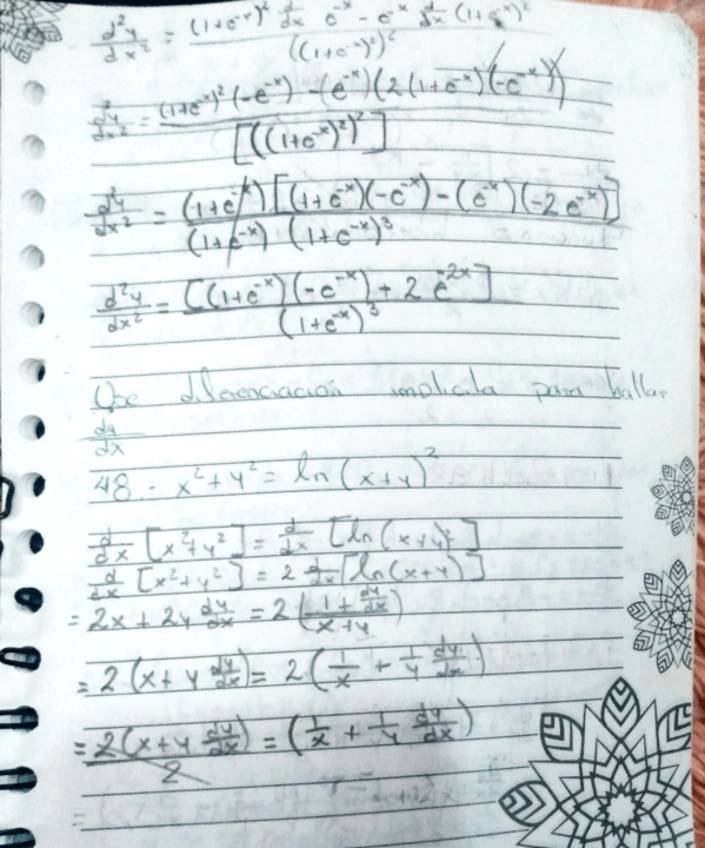 d²y/dx² = ((1+e^-x)² d/dx e^-x - e^-x d/dx (1+e^-x)²)/((1+e^-x)²)²
d²y/dx² = ((1+e^-x)² (-e^-x) - (e^-x)(2(1+e^-x)(-e^-x)))/[((1+e^-x)²)²]
d²y/dx² = ((1+e^-x)[(1+e^-x)(-e^-x) - (e^-x)(-2e^-x)])/((1+e^-x) (1+e^-x)³)
d²y/dx² = [(1+e^-x)(-e^-x) + 2 e^-2x]/(1+e^-x)³
Use diferenciación implicita para hallar
dy/dx
48.- x² + y² = ln (x+y)²
d/dx [x²+y²] = d/dx [ln(x+y)²]
d/dx [x²+y²] = 2 d/dx [ln(x+y)]
= 2x + 2y dy/dx = 2 ((1 + dy/dx)/(x+y))
= 2(x+y dy/dx) = 2 (1/x + 1/y dy/dx)
= 2(x+y dy/dx)/2 = (1/x + 1/y dy/dx)
=